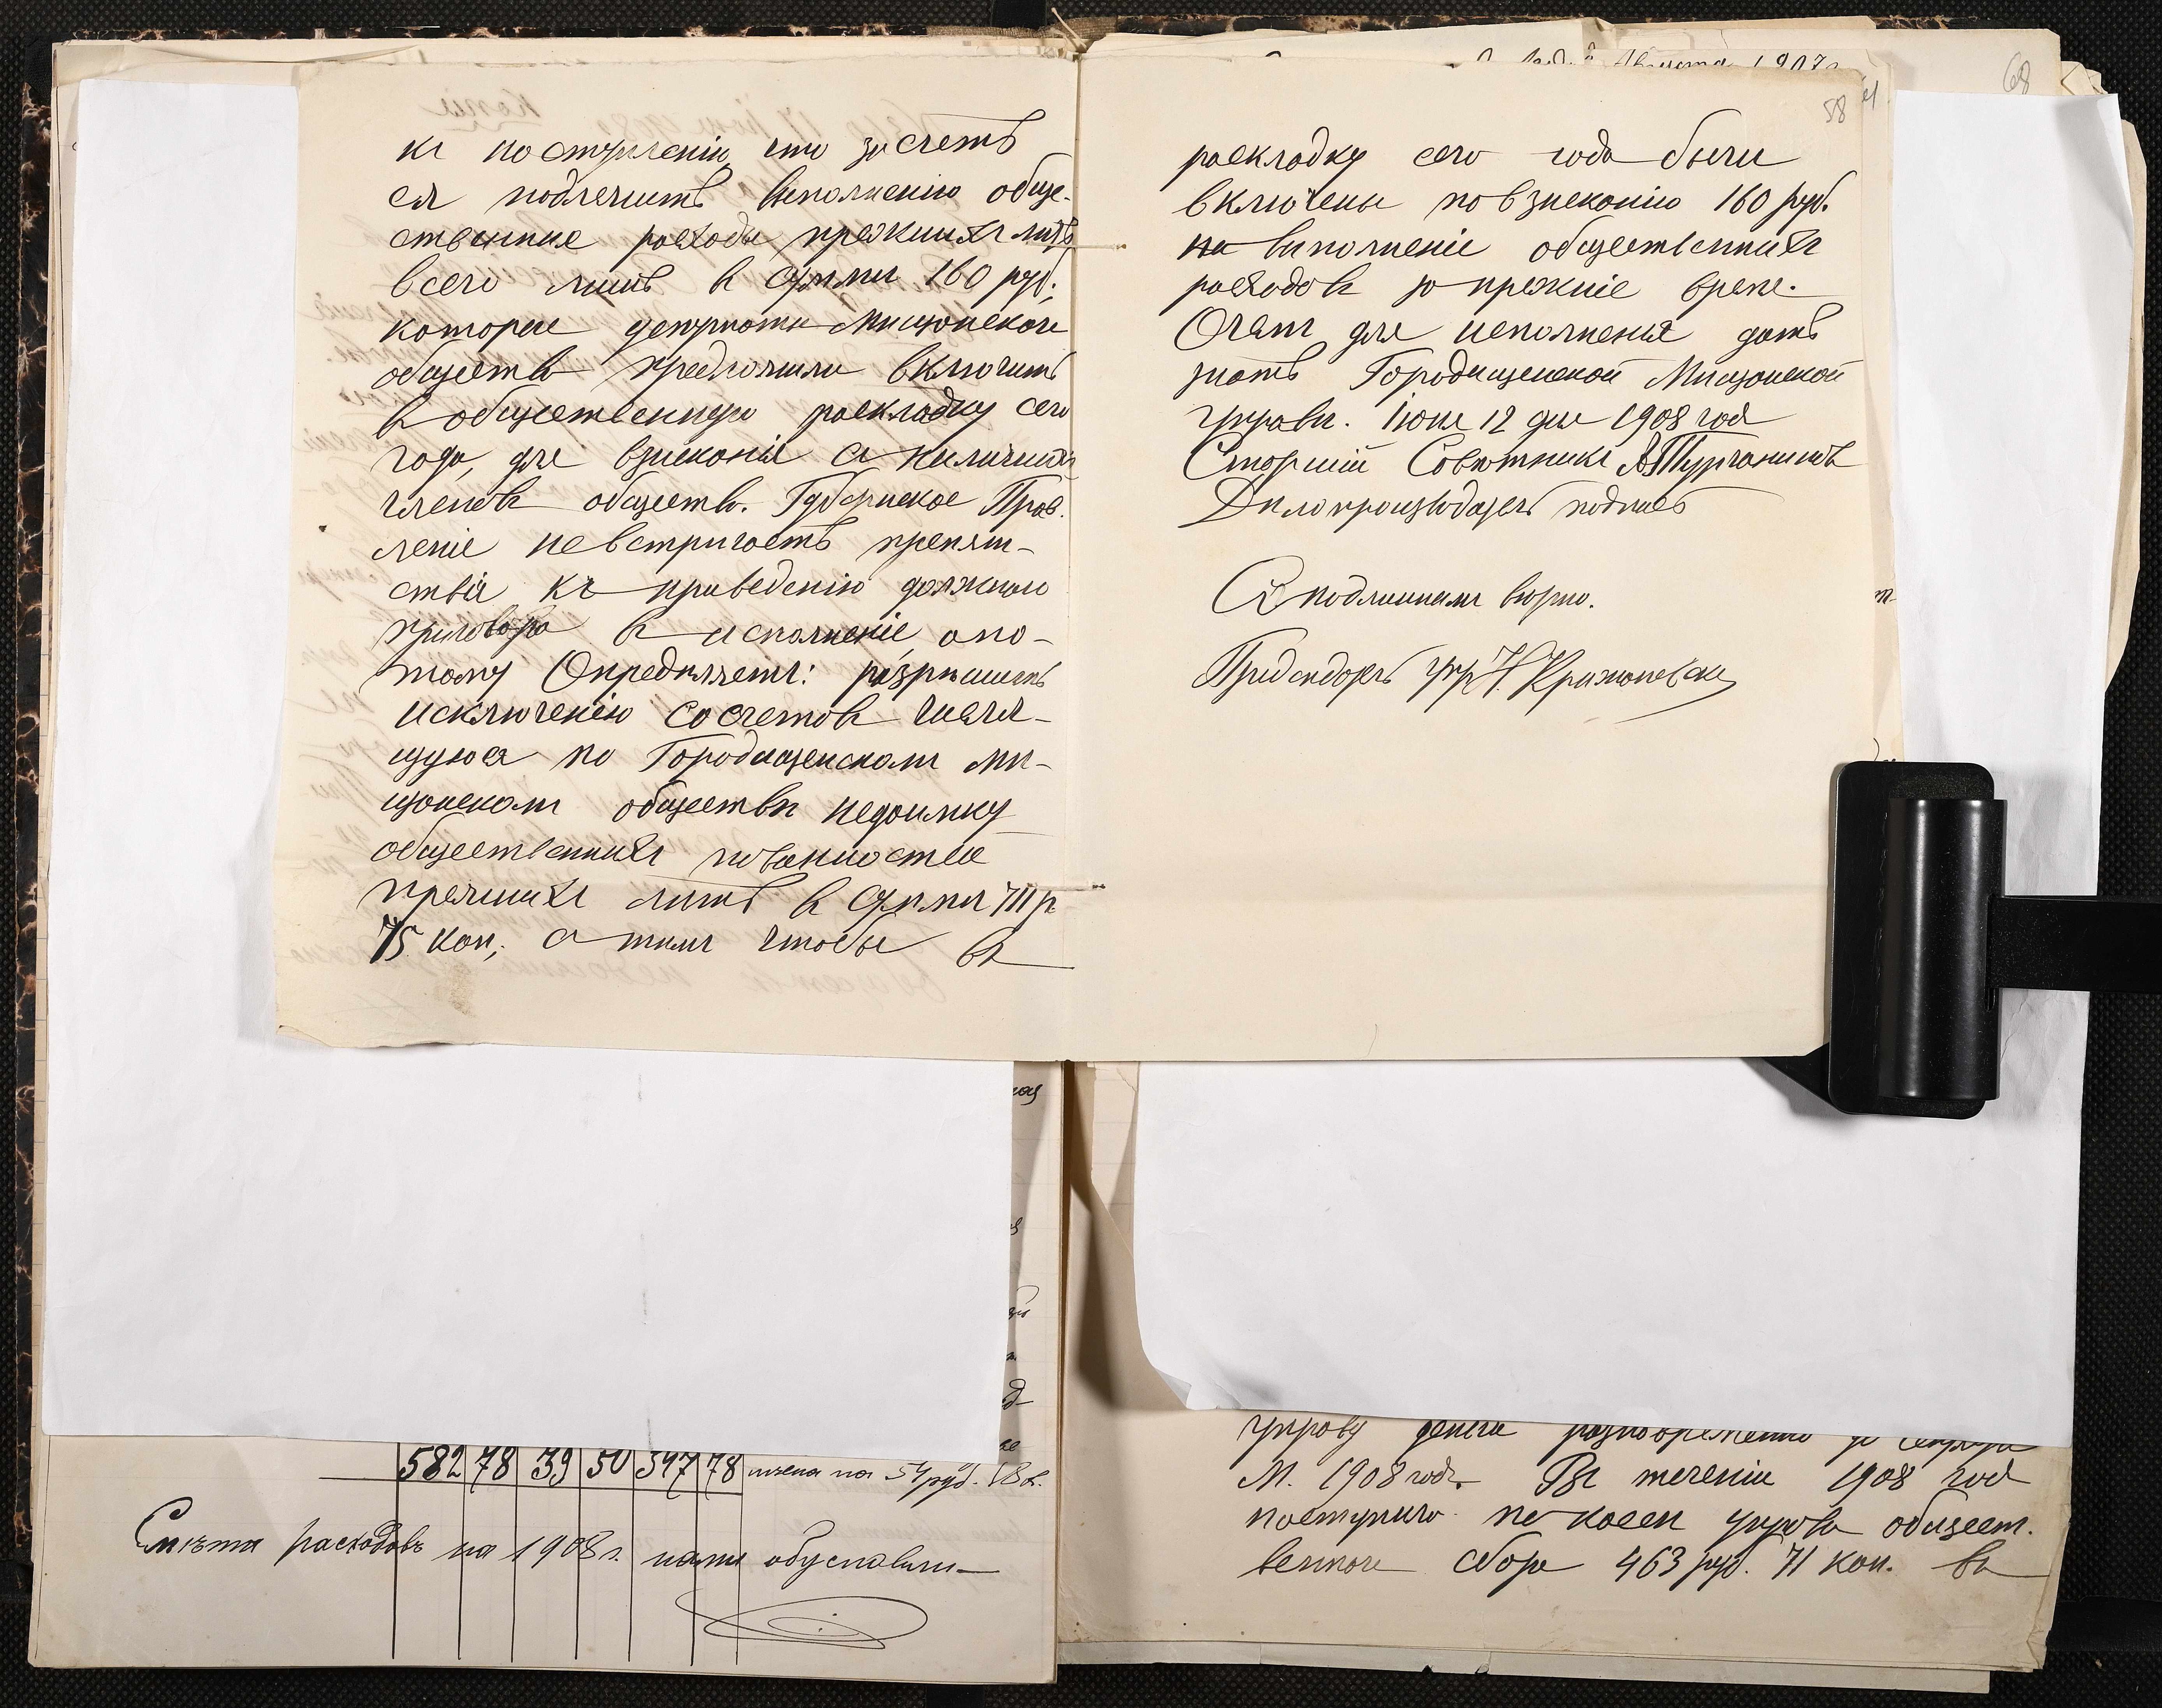 къ поступленію, что за счетъ
ея подлежитъ выполненію обще-
ственные расходы прежнихъ лѣтъ
всего лишь въ суммѣ 160 руб.,
которые депутаты Мѣщанскаго
общества предложили включить
въ общественную раскладку сего
года, для взысканія съ наличныхъ
членовъ общества. Губернское Прав-
леніе невстрѣчаетъ препят-
ствія къ приведенію должнаго
приговора въ исполненіе, а по-
тому Опредѣляетъ: разрѣшить
исключенію со счетовъ числя-
щуюся по Городищенскому мѣ-
щанскому обществу недоимку
общественныхъ повинностей
прежнихъ лѣтъ въ суммѣ 711 р.
75 коп., съ тѣмъ чтобы въ
58
раскладку сего года были
включены по взысканію 160 руб.
на выполненіе общественныхъ
расходовъ за прежніе время.
О чемъ для исполненія дать
знать Городищенской Мѣщанской
управѣ. Іюня 12 дня 1908 года
Старшій Совѣтникъ А. Турчаниновъ
Дѣлопроизводитель подпись
Съ подлиннымъ вѣрно.
Предсѣдатель упр. Н. Крижановскій
68
Августа 1907 г.
582 78 39 50 397 78 на 54 руб. 18 к.
Смѣта расходовъ на 1908 г. нами
управу деньги разновременно
М. 1908 годъ. Въ теченіи 1908 года
поступило по кассѣ управы общест-
веннаго сбора 463 руб. 71 коп. въ